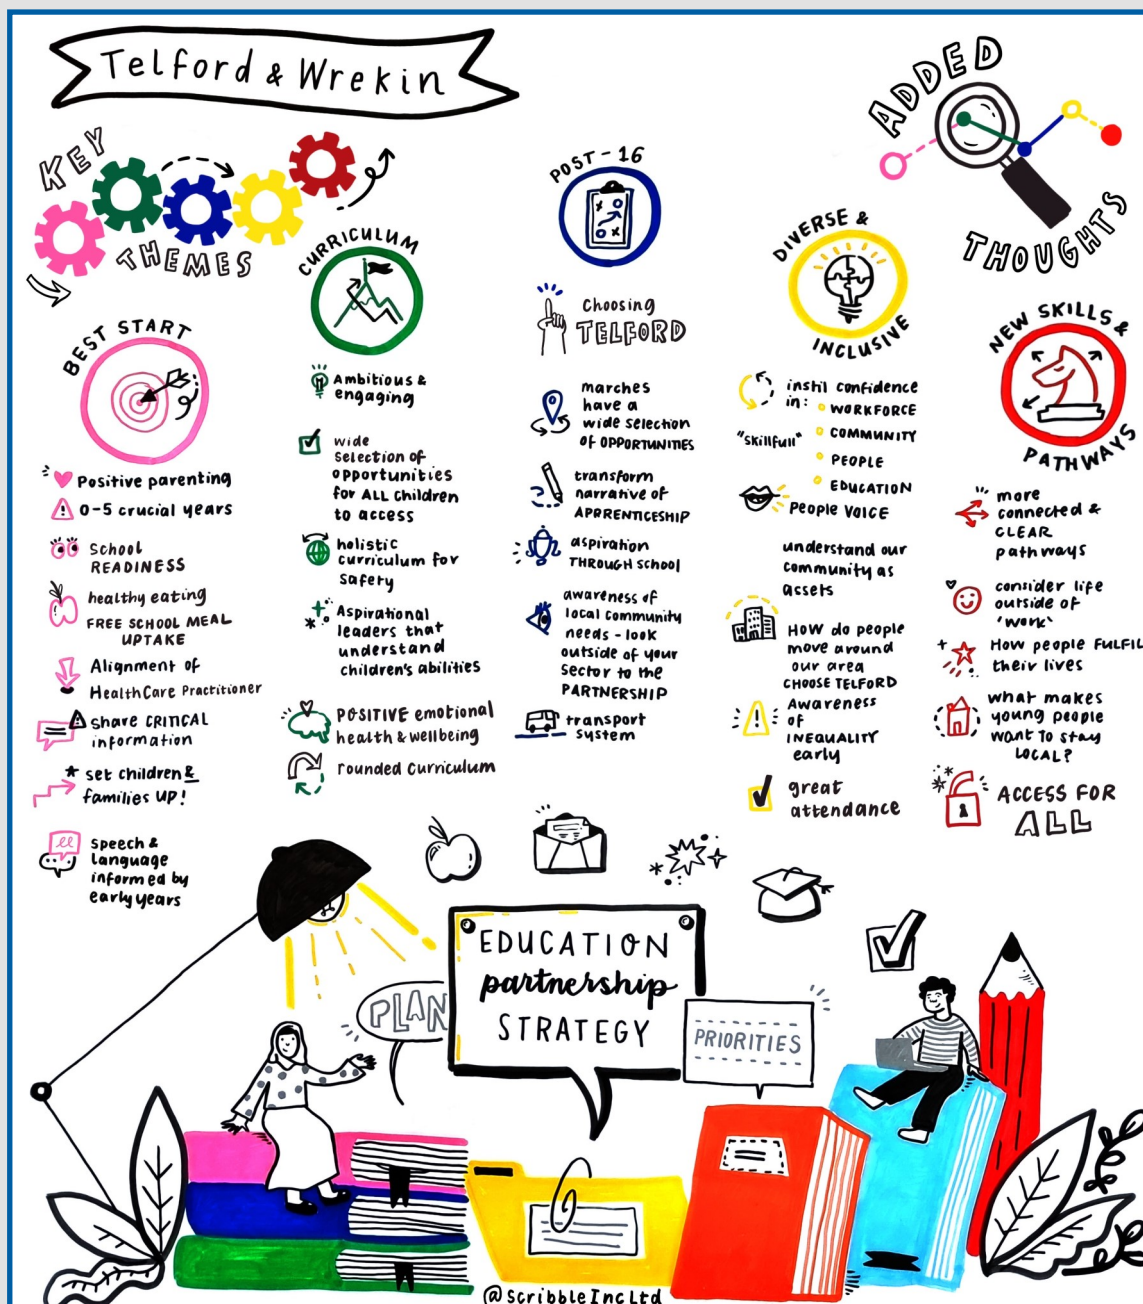 Telford & Wrekin
KEY
THEMES
ADDED
THOUGHTS
BEST START
Positive parenting
0-5 crucial years
School
READINESS
healthy eating
FREE SCHOOL MEAL
UPTAKE
Alignment of
HealthCare Practitioner
share CRITICAL
information
* set children &
families UP!
speech &
language
informed by
early years
CURRICULUM
Ambitious &
engaging
wide
selection of
opportunities
for ALL children
to access
holistic
curriculum for
Safety
Aspirational
leaders that
understand
children's abilities
POSITIVE emotional
health & wellbeing
rounded curriculum
POST-16
Choosing
TELFORD
marches
have a
wide selection
of OPPORTUNITIES
transform
narrative of
APPRENTICESHIP
aspiration
THROUGH SCHOOL
awareness of
local community
needs - look
outside of your
Sector to the
PARTNERSHIP
transport
system
DIVERSE &
INCLUSIVE
instil confidence
in:
WORKFORCE
"skillfull"
COMMUNITY
PEOPLE
EDUCATION
PEOPLE VOICE
understand our
community as
assets
HOW do people
move around
our area
CHOOSE TELFORD
Awareness
of
INEQUALITY
early
great
attendance
NEW SKILLS &
PATHWAYS
more
connected &
CLEAR
pathways
consider life
outside of
'work'
How people FULFIL
their lives
what makes
young people
want to stay
LOCAL?
ACCESS FOR
ALL
PLAN
EDUCATION
partnership
STRATEGY
PRIORITIES
@ScribbleIncLtd